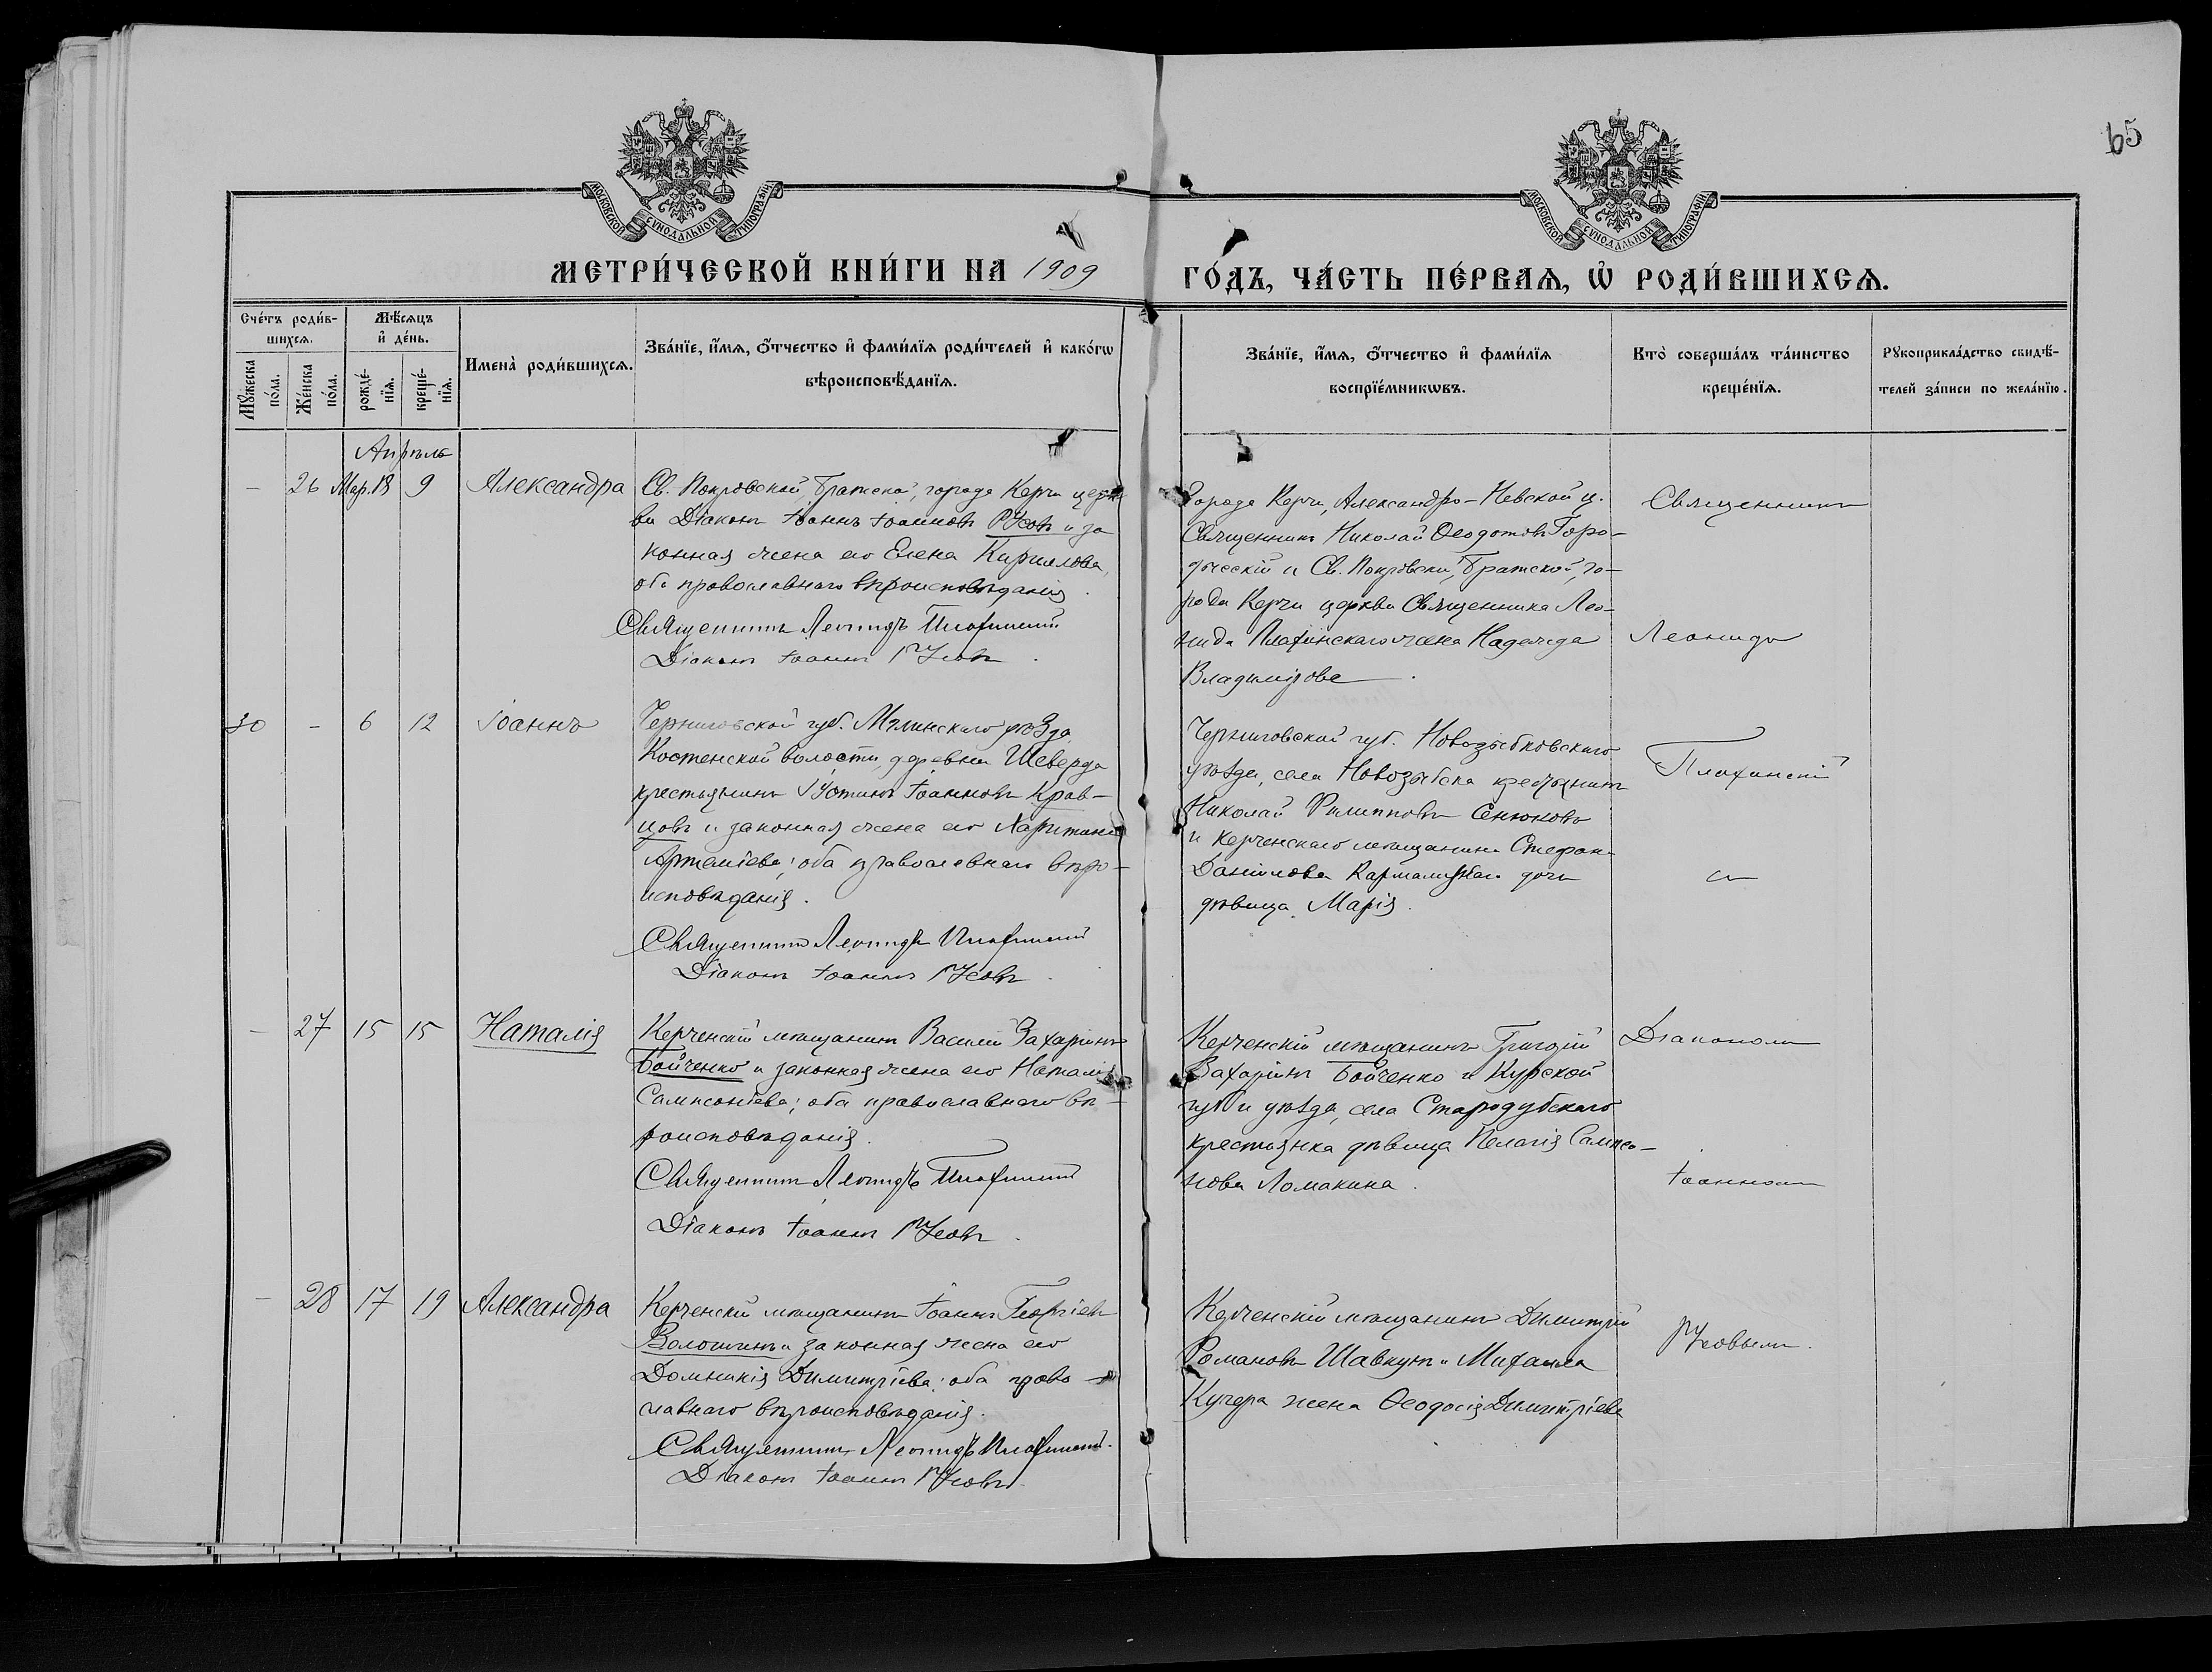 65
МОСКОВСКОЙ СѴНОДАЛЬНОЙ ТИПОГРАФІИ
МОСКОВСКОЙ СѴНОДАЛЬНОЙ ТИПОГРАФІИ
МЕТРИ́ЧЕСКОЙ КНИ́ГИ НА 1909
ГО́ДЪ, ЧА́СТЬ ПЕ́РВАѦ, Ѽ РОДИ́ВШИХСѦ.
Сче́тъ роди́в-
шихсѧ.
Мꙋ́жеска по́ла.
Же́нска по́ла.
Мѣ́сѧцъ
и҆ де́нь.
рожде́-
нїѧ.
креще́-
нїѧ.
Имена̀ роди́вшихсѧ.
Зва́нїе, и҆́мѧ, ѻ҆́тчество и҆ фами́лїѧ роди́телей и҆ како́гѡ
вѣроисповѣ́данїѧ.
Зва́нїе, и҆́мѧ, ѻ҆́тчество и҆ фами́лїѧ
воспрїе́мникѡвъ.
Кто̀ соверша́лъ та́инство
креще́нїѧ.
Рꙋкоприкла́дство свидѣ́-
телей за́писи по жела́нїю.
Апрѣль
— 26 Мар. 18 9 Александра
Св. Покровской, Братской, города Керчи церк-
ви Діаконъ Іоаннъ Іоанновъ Усовъ и за
конная жена его Елена Кириллова,
оба православнаго вѣроисповѣданія.
Священникъ Леонидъ Плафинскій
Діаконъ Іоаннъ Усовъ.
Города Керчи, Александро-Невской ц.
Священникъ Николай Ѳеодотовъ Горо-
дческій и Св. Покровской, Братской, го-
рода Керчи церкви Священника Лео-
нида Плафинскаго жена Надежда
Владимірова.
Священникъ
Леонидъ
30 – 6 12 Іоаннъ
Черниговской губ. Мглинскаго уѣзда,
Костенской волости, деревни Шеверда
крестьянинъ Устинъ Іоанновъ Крав-
цовъ и законная жена его Харитина
Артеміева; оба православнаго вѣро-
исповѣданія.
Священникъ Леонидъ Плафинскій
Діаконъ Іоаннъ Усовъ.
Черниговской губ. Новозыбковскаго
уѣзда, села Новозыбка крестьянинъ
Николай Филипповъ Сенюковъ
и Керченскаго мѣщанина Стефана
Даніилова дочь
дѣвица Марія.
Плафинскій
съ
— 27 15 15 Наталія
Керченскій мѣщанинъ Василій Захаріинъ
Бойченко и законная жена его Наталія
Сампсоніева; оба православнаго вѣ-
роисповѣданія.
Священникъ Леонидъ Плафинскій
Діаконъ Іоаннъ Усовъ.
Керченскій мѣщанинъ Григорій
Захаріинъ Бойченко и Курской
губ. и уѣзда, села Стародубскаго
крестьянка дѣвица Пелагія Сампсо-
нова Ломакина.
Діакономъ
Іоанномъ
— 28 17 19 Александра
Керченскій мѣщанинъ Іоаннъ Георгіевъ
Волошинъ и законная жена его
Домникія Димитріева; оба право-
славнаго вѣроисповѣданія.
Священникъ Леонидъ Плафинскій.
Діаконъ Іоаннъ Усовъ.
Керченскій мѣщанинъ Димитрій
Романовъ Шавкунъ и Михаила
Кучера жена Ѳеодосія Димитріева
Усовымъ.